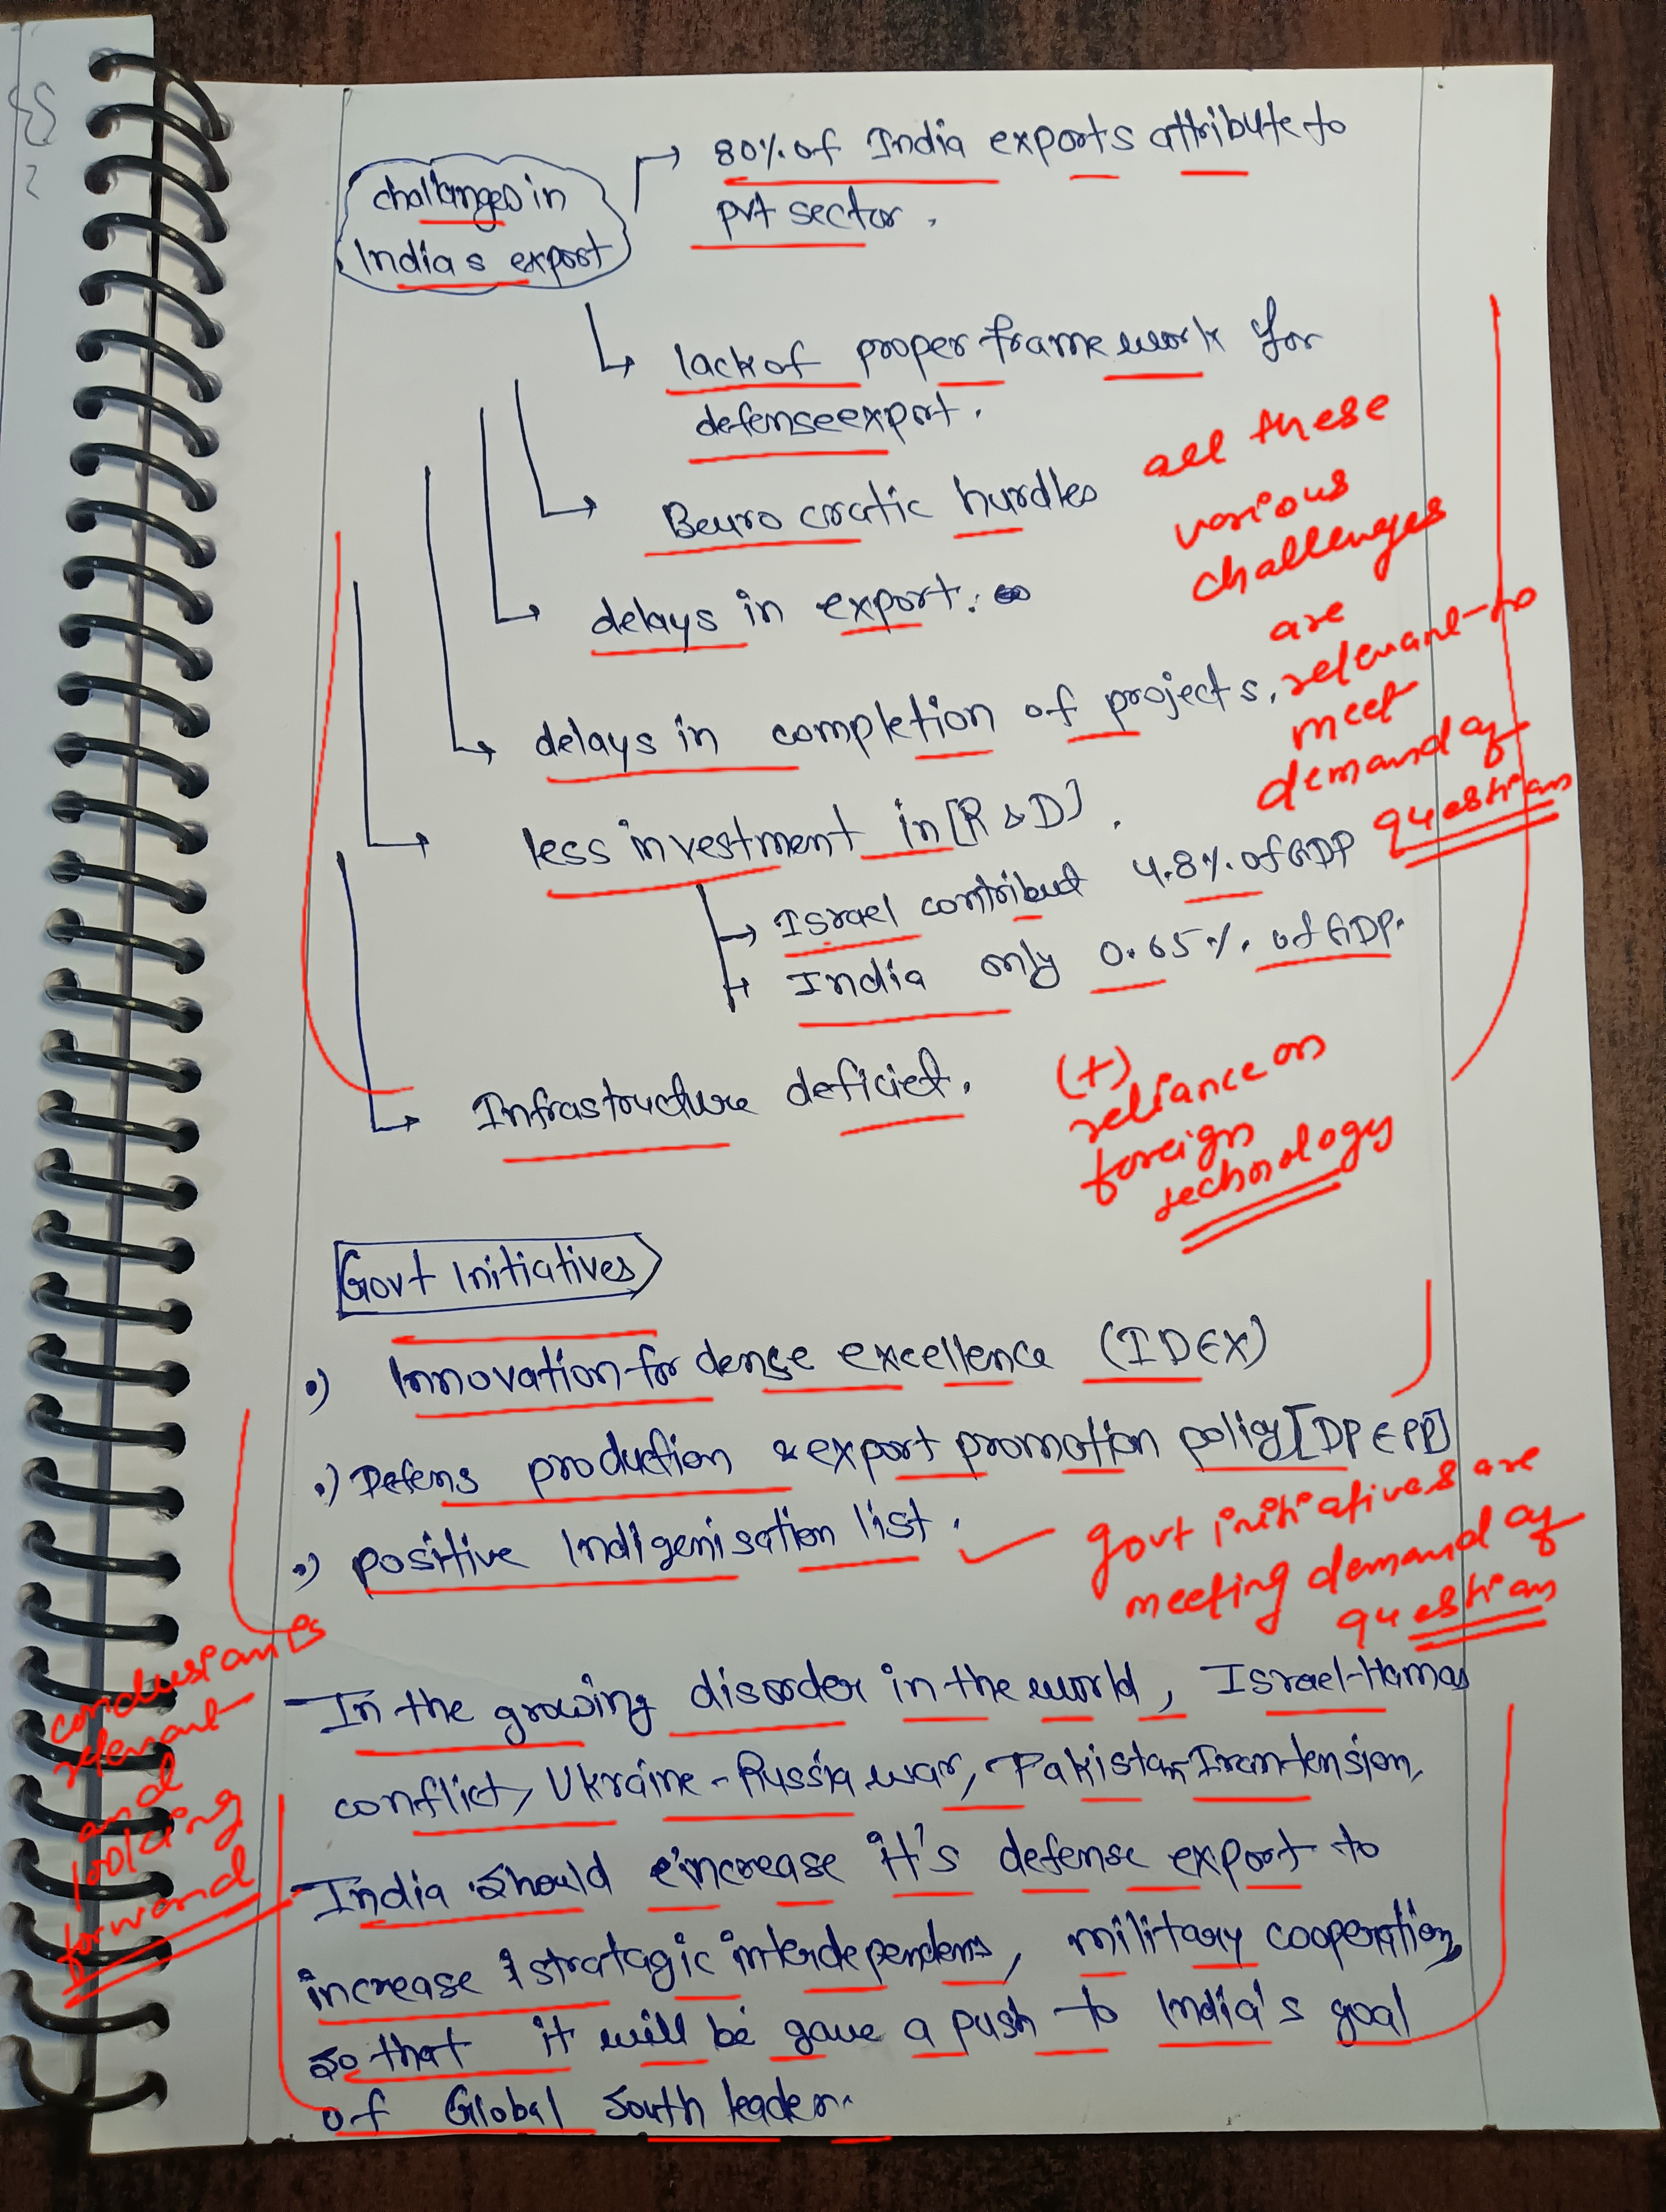 challanges in
India s export
80% of India exports attribute to
pvt sector.
lack of proper frame work for
defense export.
Beuro cratic hurdles
delays in export.
delays in completion of projects.
less investment in [R & D].
Israel contribut 4.8% of GDP
India only 0.65%. of GDP.
Infrastructure deficiet.
all these
various
challenges
are
relevant to
meet
demand of
question
(+)
reliance on
foreign
technology
Govt Initiatives
•) Innovation for dense excellence (IDEX)
•) Defens production & export promotion policy [DPEPP]
•) positive Indigenisation list.
govt initiatives are
meeting demand of
question
In the growing disorder in the world, Israel-Hamas
conflict, Ukraine-Russia war, Pakistan-Iran tension,
India should increase it's defense export to
increase stratagic interdependens, military cooperation,
so that it will be gave a push to India's goal
of Global South leader.
conclusion is
relevant
and
looking
forward